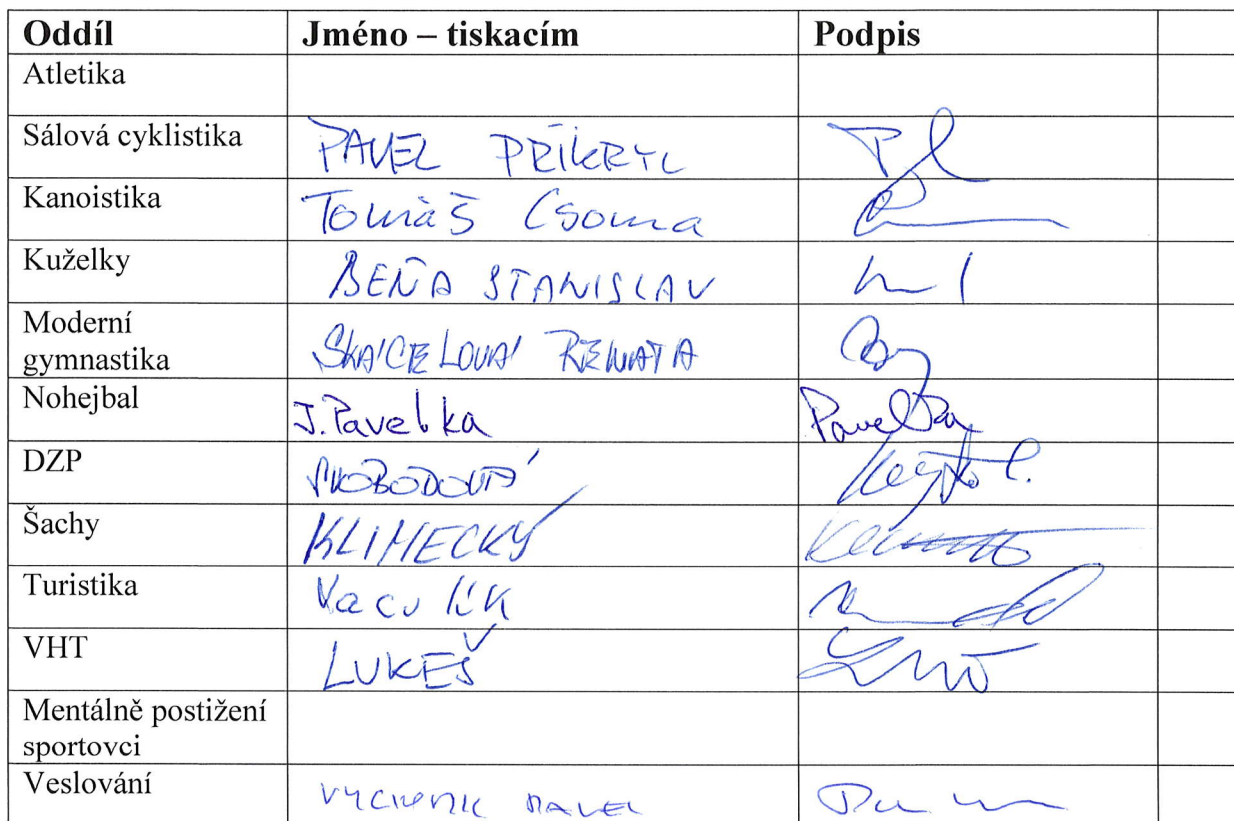 Oddíl Jméno – tiskacím Podpis
Atletika
Sálová cyklistika PAVEL PŘIKRYL
Kanoistika Tomáš Csoma
Kuželky BEŇA STANISLAV
Moderní
gymnastika SKÁCELOVÁ RENATA
Nohejbal J. Pavelka Pavelka
DZP SVOBODOVÁ
Šachy KLIMECKÝ
Turistika Vaculík
VHT LUKEŠ
Mentálně postižení
sportovci
Veslování PAVEL